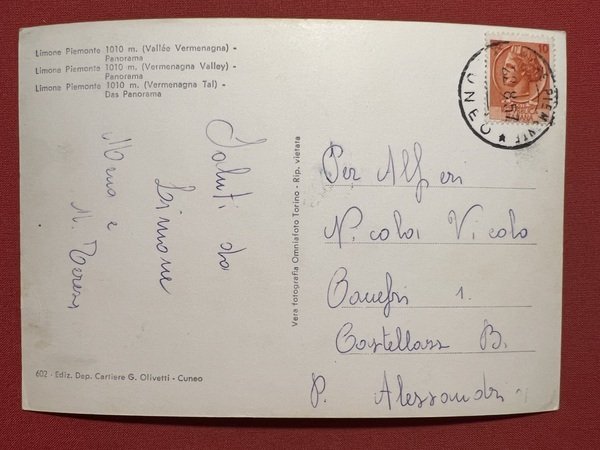 Limone Piemonte 1010 m. (Vallée Vermenagna) -
Panorama
Limone Piemonte 1010 m. (Vermenagna Valley) -
Panorama
Limone Piemonte 1010 m. (Vermenagna Tal) -
Das Panorama
Saluti da
Limone
e
M. Teresa
602 - Ediz. Dep. Cartiere G. Olivetti - Cuneo
Vera fotografia Omniafoto Torino - Rip. vietata
10
CUNEO
Per Alfieri
Nicola Vicolo
1.
Castellazzo B.
P. Alessandria